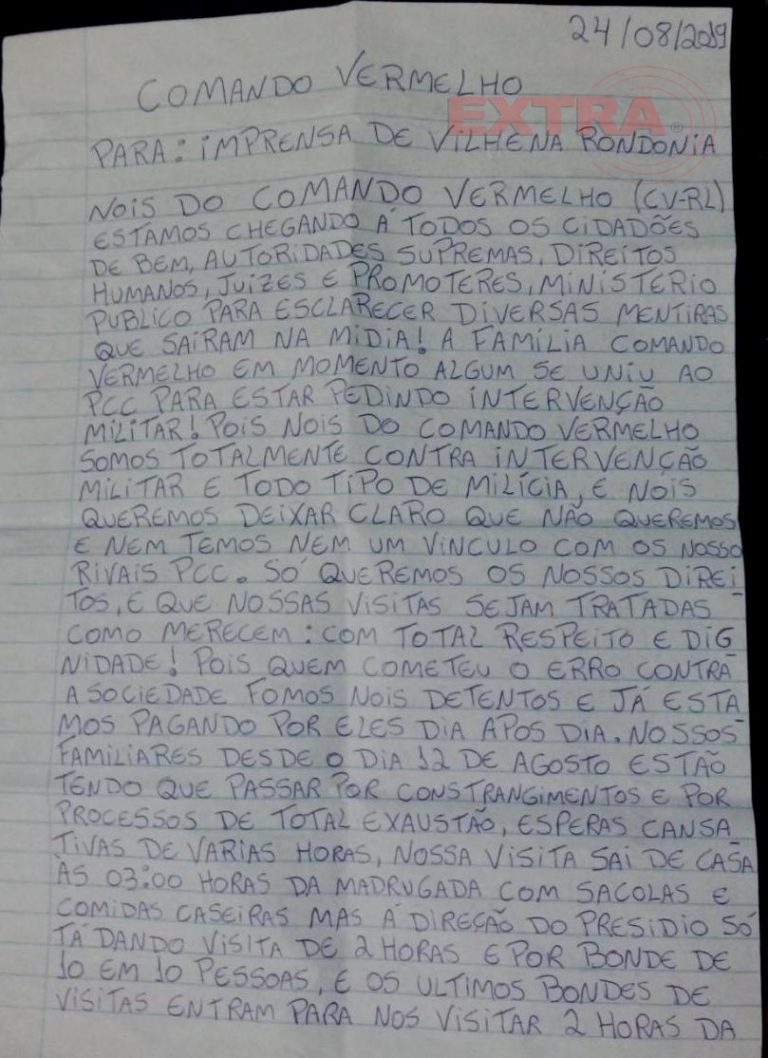 24/08/2019
COMANDO VERMELHO
EXTRA
PARA: IMPRENSA DE VILHENA RONDONIA
NOIS DO COMANDO VERMELHO (CV-RL)
ESTAMOS CHEGANDO Á TODOS OS CIDADÕES
DE BEM, AUTORIDADES SUPREMAS, DIREITOS
HUMANOS, JUIZES E PROMOTERES, MINISTERIO
PUBLICO PARA ESCLARECER DIVERSAS MENTIRAS
QUE SAIRAM NA MÍDIA! A FAMÍLIA COMANDO
VERMELHO EM MOMENTO ALGUM SE UNIU AO
PCC PARA ESTAR PEDINDO INTERVENÇÃO
MILITAR! POIS NOIS DO COMANDO VERMELHO
SOMOS TOTALMENTE CONTRA INTERVENÇÃO
MILITAR E TODO TIPO DE MILÍCIA, E NOIS
QUEREMOS DEIXAR CLARO QUE NÃO QUEREMOS
E NEM TEMOS NEM UM VINCULO COM OS NOSSO
RIVAIS PCC. SÓ QUEREMOS OS NOSSOS DIREI
TOS, E QUE NOSSAS VISITAS SEJAM TRATADAS
COMO MERECEM: COM TOTAL RESPEITO E DIG
NIDADE! POIS QUEM COMETEU O ERRO CONTRA
A SOCIEDADE FOMOS NOIS DETENTOS E JÁ ESTA
MOS PAGANDO POR ELES DIA APOS DIA. NOSSOS
FAMILIARES DESDE O DIA 12 DE AGOSTO ESTÃO
TENDO QUE PASSAR POR CONSTRANGIMENTOS E POR
PROCESSOS DE TOTAL EXAUSTÃO, ESPERAS CANSA
TIVAS DE VARIAS HORAS, NOSSA VISITA SAI DE CASA
ÀS 03:00 HORAS DA MADRUGADA COM SACOLAS E
COMIDAS CASEIRAS MAS Á DIREÇÃO DO PRESIDIO SÓ
TÁ DANDO VISITA DE 2 HORAS E POR BONDE DE
10 EM 10 PESSOAS, E OS ULTIMOS BONDES DE
VISITAS ENTRAM PARA NOS VISITAR 2 HORAS DA